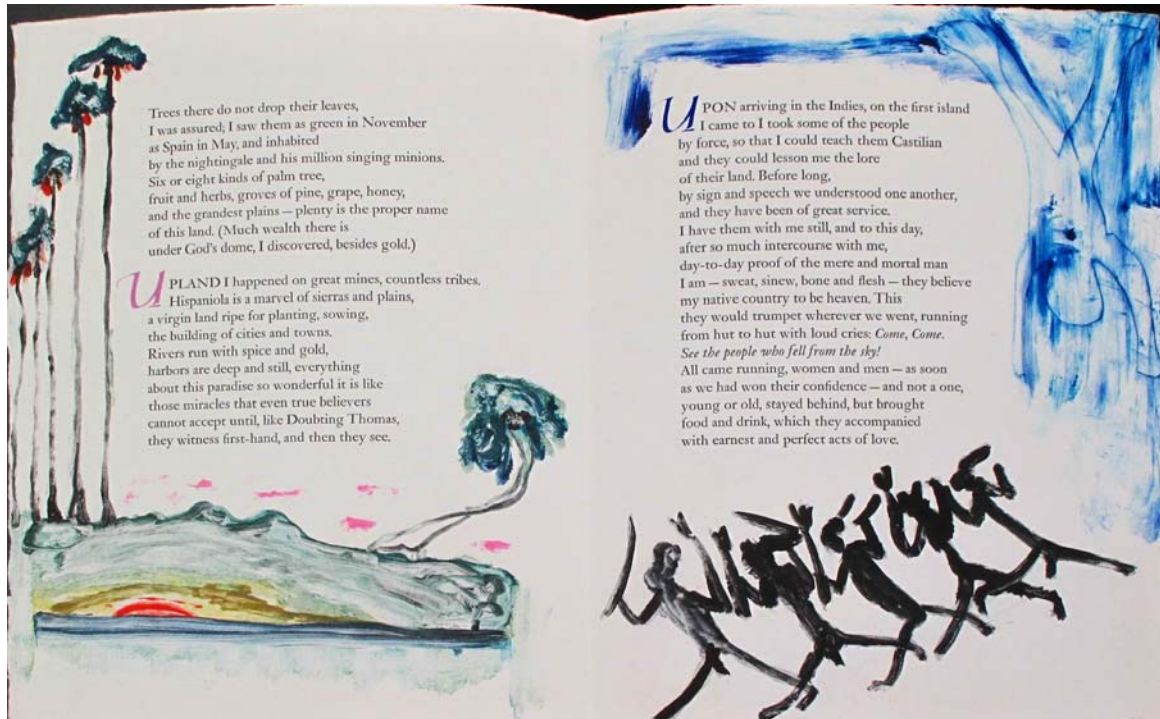 Trees there do not drop their leaves,
I was assured; I saw them as green in November
as Spain in May, and inhabited
by the nightingale and his million singing minions.
Six or eight kinds of palm tree,
fruit and herbs, groves of pine, grape, honey,
and the grandest plains — plenty is the proper name
of this land. (Much wealth there is
under God's dome, I discovered, besides gold.)
UPLAND I happened on great mines, countless tribes.
Hispaniola is a marvel of sierras and plains,
a virgin land ripe for planting, sowing,
the building of cities and towns.
Rivers run with spice and gold,
harbors are deep and still, everything
about this paradise so wonderful it is like
those miracles that even true believers
cannot accept until, like Doubting Thomas,
they witness first-hand, and then they see.
UPON arriving in the Indies, on the first island
I came to I took some of the people
by force, so that I could teach them Castilian
and they could lesson me the lore
of their land. Before long,
by sign and speech we understood one another,
and they have been of great service.
I have them with me still, and to this day,
after so much intercourse with me,
day-to-day proof of the mere and mortal man
I am — sweat, sinew, bone and flesh — they believe
my native country to be heaven. This
they would trumpet wherever we went, running
from hut to hut with loud cries: Come, Come.
See the people who fell from the sky!
All came running, women and men — as soon
as we had won their confidence — and not a one,
young or old, stayed behind, but brought
food and drink, which they accompanied
with earnest and perfect acts of love.